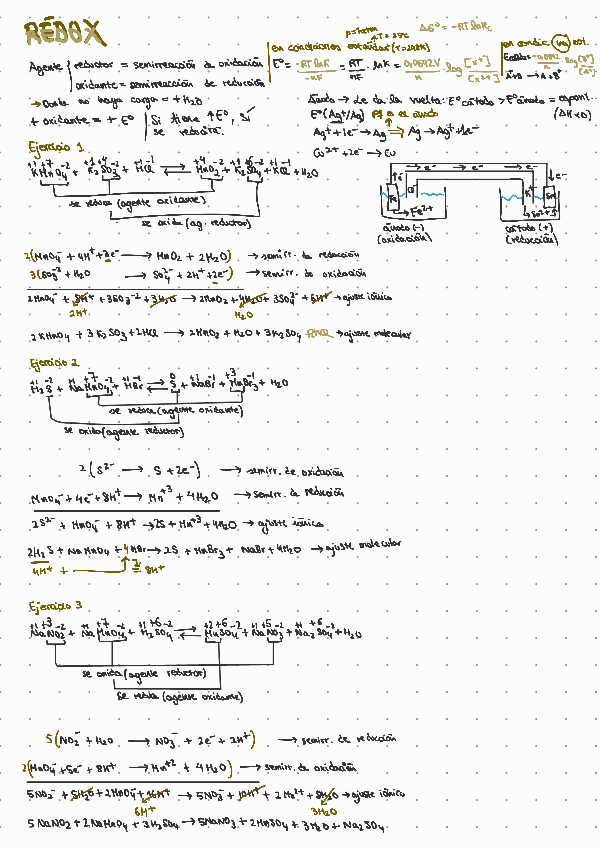 REDOX
Agente { reductor = semirreacción de oxidación
oxidante = semirreacción de reducción
→ Donde no haya cargo = + H₂O
+ oxidante = + E° | Si tiene ↑E°, sí se reduce.
P=1atm
T = 25°C
ΔG° = -RT ln Kc
en condiciones estándar (T=298K)
E° = -RT ln K / -nF = RT / nF · ln K = 0,0592V / n · log
Ánodo → Le da la vuelta: E° cátodo > E° ánodo = espont.
(ΔH<0)
E° (Ag⁺/Ag)
Ag⁺ + 1e⁻ → Ag ⇒ Ag → Ag⁺ + 1e⁻
Cu²⁺ + 2e⁻ → Cu
e⁻ → e⁻ → e⁻
ánodo (-)
(oxidación)
cátodo (+)
(reducción)
Ejercicio 1
+1 +7 -2 +1 +4 -2 +1 -1 +4 -2 +1 +6 -2 +1 -1
KMnO₄ + K₂SO₃ + HCl ⇄ MnO₂ + K₂SO₄ + KCl + H₂O
se reduce (agente oxidante)
se oxida (ag. reductor)
2(MnO₄⁻ + 4H⁺ + 3e⁻ → MnO₂ + 2H₂O) → semirr. de reducción
3(SO₃²⁻ + H₂O → SO₄²⁻ + 2H⁺ + 2e⁻) → semirr. de oxidación
2MnO₄⁻ + 8H⁺ + 3SO₃⁻² + 3H₂O → 2MnO₂ + 4H₂O + 3SO₄²⁻ + 6H⁺ → ajuste iónico
2H⁺ H₂O
2KMnO₄ + 3K₂SO₃ + 2HCl → 2MnO₂ + H₂O + 3K₂SO₄ → ajuste molecular
Ejercicio 2
+1 -2 +1 +7 -2 +1 -1 0 +1 -1 +3 -1
H₂S + NaMnO₄ + HBr ⇄ S + NaBr + MnBr₃ + H₂O
se reduce (agente oxidante)
se oxida (agente reductor)
2(S²⁻ → S + 2e⁻) → semirr. de oxidación
MnO₄⁻ + 4e⁻ + 8H⁺ → Mn⁺³ + 4H₂O → semirr. de reducción
2S²⁻ + MnO₄⁻ + 8H⁺ → 2S + Mn⁺³ + 4H₂O → ajuste iónico
2H₂S + NaMnO₄ + 4HBr → 2S + MnBr₃ + NaBr + 4H₂O → ajuste molecular
4H⁺ + = 8H⁺
Ejercicio 3
+1 +3 -2 +1 +7 -2 +1 +6 -2 +2 +6 -2 +1 +5 -2 +1 +6 -2
NaNO₂ + NaMnO₄ + H₂SO₄ ⇄ MnSO₄ + NaNO₃ + Na₂SO₄ + H₂O
se oxida (agente reductor)
se reduce (agente oxidante)
5(NO₂⁻ + H₂O → NO₃⁻ + 2e⁻ + 2H⁺) → semirr. de reducción
2(MnO₄⁻ + 5e⁻ + 8H⁺ → Mn⁺² + 4H₂O) → semirr. de oxidación
5NO₂⁻ + 5H₂O + 2MnO₄⁻ + 16H⁺ → 5NO₃⁻ + 10H⁺ + 2Mn²⁺ + 8H₂O → ajuste iónico
6H⁺ 3H₂O
5NaNO₂ + 2NaMnO₄ + 3H₂SO₄ → 5NaNO₃ + 2MnSO₄ + 3H₂O + Na₂SO₄